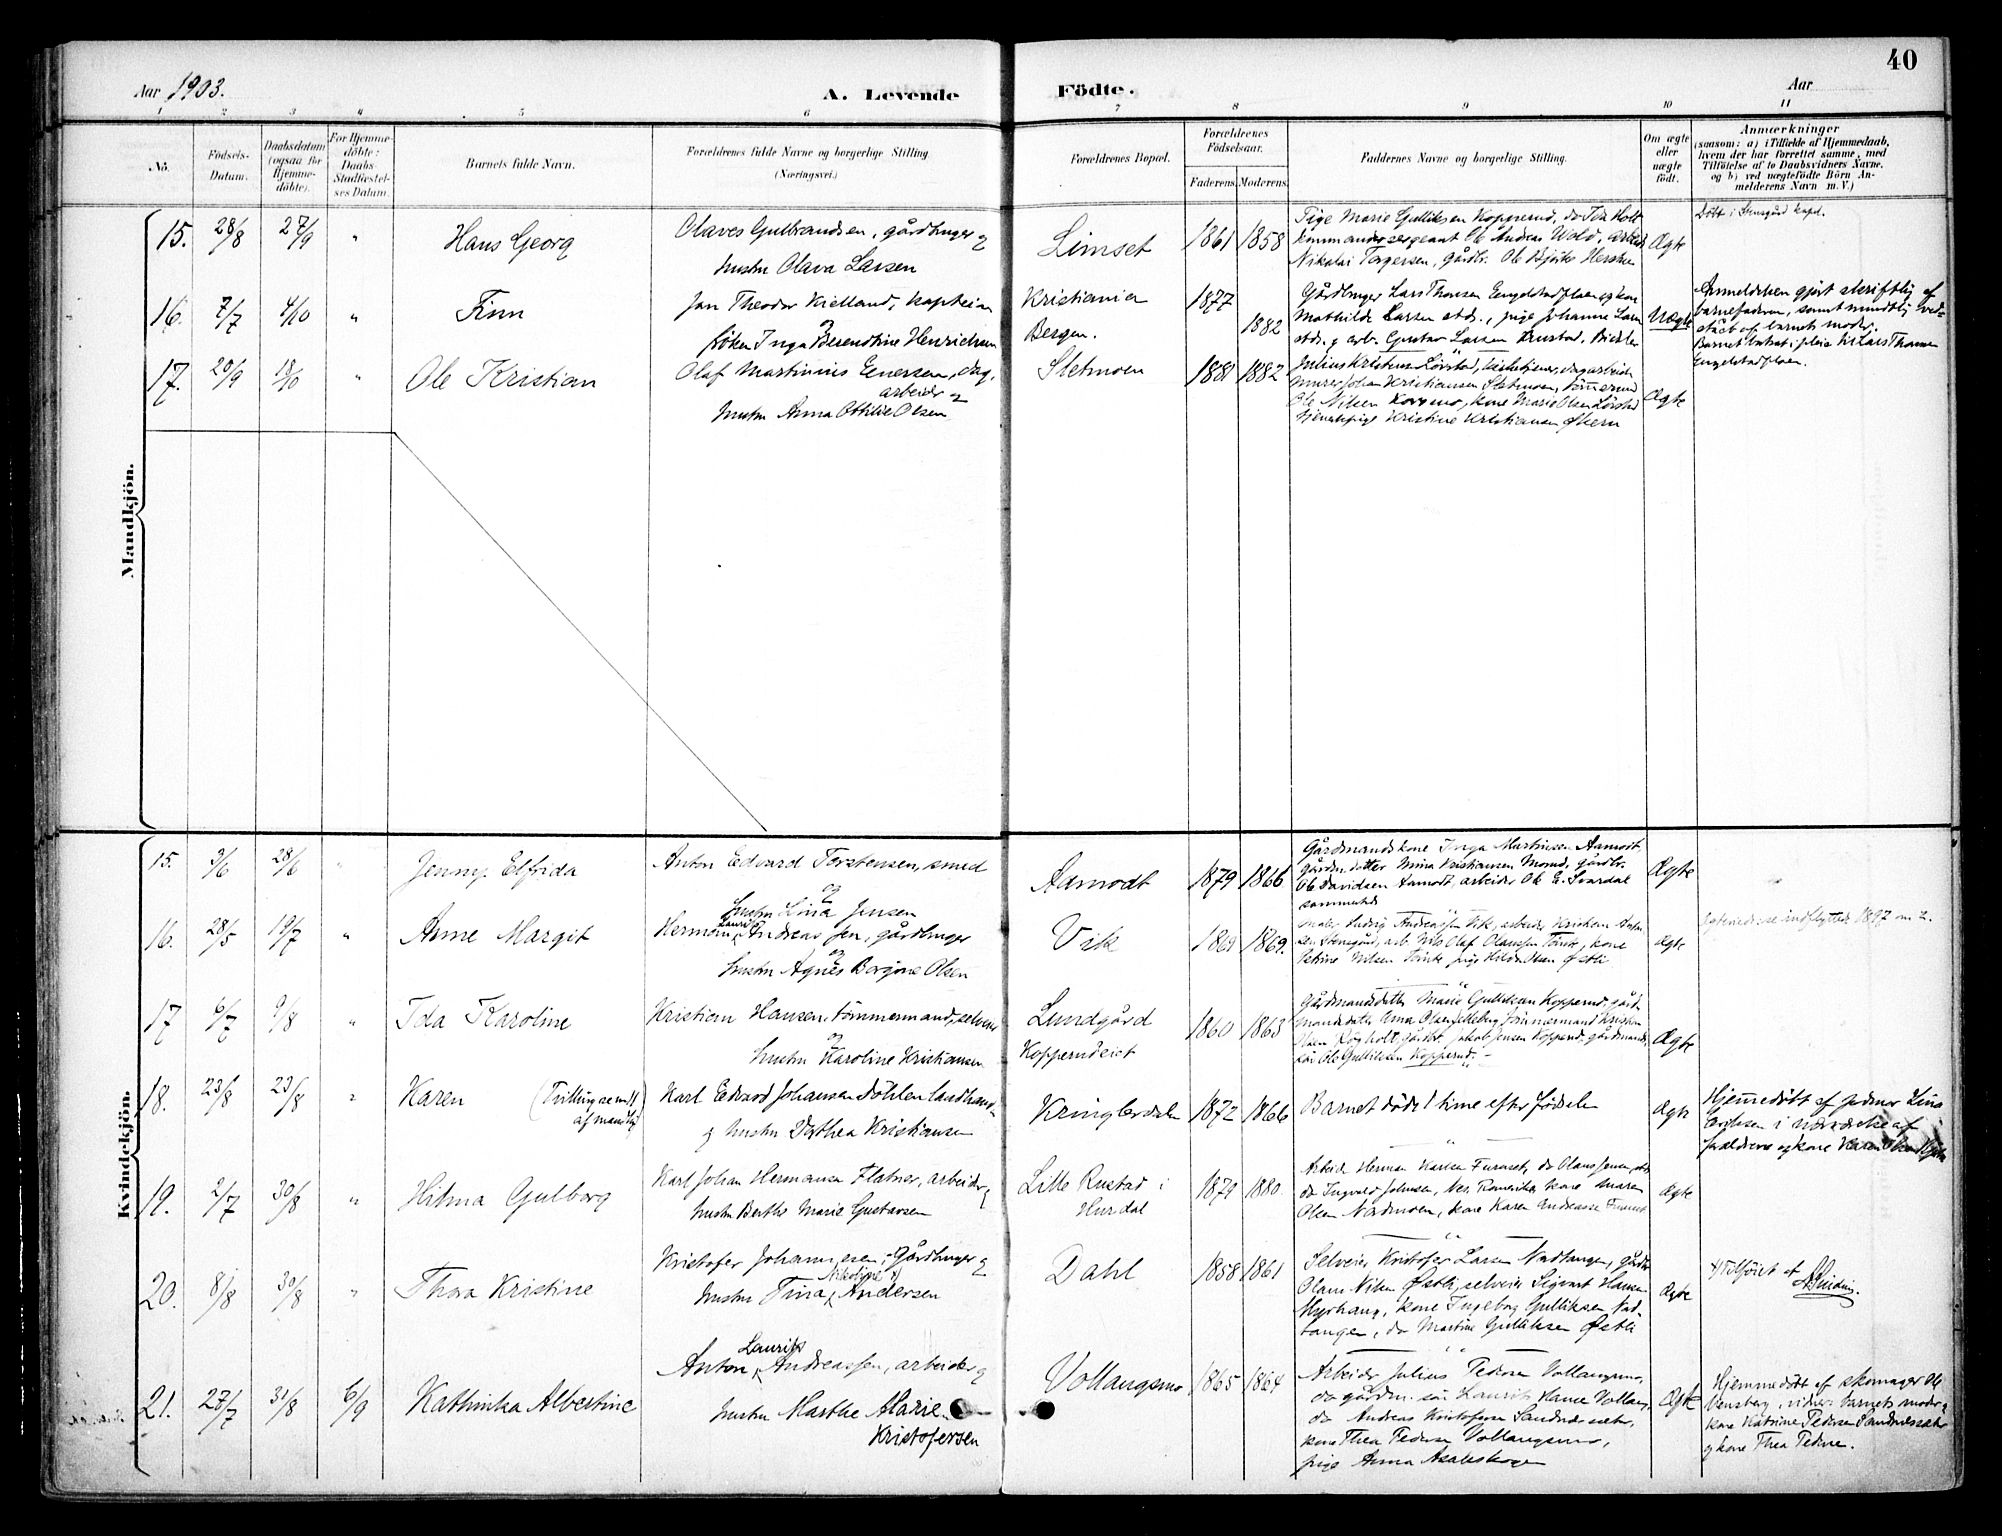 Aar 1903.
A. Levende
Födte.
Aar
40
1 2 3 4 5 6 7 8 9 10 11
No.
Födsels-Datum.
Daabsdatum (ogsaa for Hjemme-döbte).
For Hjemme-döbte: Daabs Stadfæstel-ses Datum.
Barnets fulde Navn.
Forældrenes fulde Navne og borgerlige Stilling (Næringsvei.)
Forældrenes Bopæl.
Forældrenes Födselsaar.
Faderens. Moderens.
Faddernes Navne og borgerlige Stilling.
Om ægte eller uægte födt.
Anmærkninger
(saasom: a) i Tilfælde af Hjemmedaab, hvem der har forrettet samme, med Tilföielse af to Daabsvidners Navne, og b) ved uægtefödte Börn An-melderens Navn m. V.)
Mandkjön.
15. 28/8 27/9 " Hans Georg
Olaves Gulbrandsen, gårdbruger og
hustru Olava Larsen
Limset 1861 1858
Pige Marie Gulliksen Kopperud, do Ida Holt
kommandersergeant Ole Andreas Wold, arbeid.
Nikolai Torgersen, gårdbr. Ole
Ægte
Döbt i Stensgård kapel.
16. 7/7 4/10 " Finn
Jan Theodor Kielland, kaptein
og
fröken Inga Berendtine Henrichsen
Kristiania
Bergen.
1877 1882
Gårdbruger Lars Thomsen Engelstadfloen og kone
Mathilde Larsen stds., pige Johanne Larsen
stds. og arb. Gustav Larsen
Uægte
Anmeldelsen gjort skriftlig af
barnefaderen, samt mundtlig ved-
stået af barnets moder.
Barnet bortsat i pleie til Lars Thomsen
Engelstadfloen.
17. 20/9 18/10 " Ole Kristian
Olaf Martinius Enersen, dag-
arbeider og
hustru Anna Ottilie Olsen
Sletmoen 1881 1882
Julius Kristensen Lörstad, dagarbeider
Murer Johan Kristiansen Sletmoen, tömmermd
Ole Nilsen Korsmo, kone Marie Olsen Lörstad
tjenestepige Kristine Kristiansen Økern
Ægte
Kvindekjön.
15. 3/6 28/6 " Jenny Elfrida
Anton Edvard Torstensen, smed
og
hustru Lina Jensen
Aamodt 1879 1866
Gårdmandskone Inga Martinsen Aamodt,
gårdm. datter Mina Kristiansen Morud, gårdbr.
Ole Davidsen Aamodt, arbeider Ole E. Svardal
sammesteds
Ægte
16. 28/5 19/7 " Anne Margit
Herman Laurits Andreassen, gårdbruger
og
hustru Agnes Borgine Olsen
Vik 1869 1869.
Maler Ludvig Andreassen Vik, arbeider Kristian
Stensgård, arb. Nils Olaf Olaussen Tömte, kone
Petrine Nilsen Tömte, pige Hilda Olsen Østli
Ægte
Ægteviede, se indflyttede 1897 no 2.
17 6/7 9/8 " Ida Karoline
Kristian Hansen, tömmermand, selveier
og
hustru Karoline Kristiansen
Lundgård
Kopperudeiet
1860 1863
Gårdmandsdatter Marie Gulliksen Kopperud, gård-
mandsdatter Anna Olsen Jelleberg, tömmermand Kristian
Olsen Rögholt, gårdbr. Jakob Jensen Kopperud, gårdmands-
sön Ole Gulliksen Kopperud.
Ægte
18. 23/8 23/8 " Karen (Tvilling se no 11 af mandkj.)
Karl Edvard Johansen Döhlen landhand.
og hustru Dorthea Kristiansen
Kringlerdalen 1872 1866
Barnet döde 1 time efter födselen
Ægte
Hjemmedöbt af jordmor Lina
Eriksen i nærværelse af
forældrene og kone Karen
19. 2/7 30/8 " Hilma Gulborg
Karl Johan Hermansen Flatner, arbeider og
hustru Berthe Marie Gustavsen
Lille Rustad i
Hurdal
1879 1880
Arbeid. Herman Karlsen Furuset, do Olaus Jensen, stds.
do Ingvald Johnsen, Nes Romerike, kone Maren
Olsen Nordmoen, kone Karen Andreasse Furuset
Ægte
20. 8/8 30/8 " Thora Kristine
Kristofer Johannesen, Gårdbruger og
hustru Tina Nikoline Andersen
Dahl 1858 1861
Selveier Kristofer Larsen Nordtangen, gårdbr.
Olaus Nilsen Østli, selveier Sigvart Hansen
Myrhaug, kone Ingeborg Gulliksen Nord-
tangen, do Martine Gulliksen Østli
Ægte
Tilföiet af
21. 27/7 31/8 6/9 Kathinka Albertine
Anton Laurits Andreassen, arbeider og
hustru Marthe Marie
Kristofersen
Vollangsmo 1865 1864
Arbeider Julius Pedersen Vollangsmo,
do gårdm. sön Laurits Hansen Vollang,
do Andreas Kristofersen Sandnessæter,
kone Thea Pedersen Vollangsmo,
pige Anna
Ægte
Hjemmedöbt af skomager Ole
Vensberg, vidner: barnets moder og
kone Katrine Pedersen Sandnessæter
og kone Thea Pedersen.